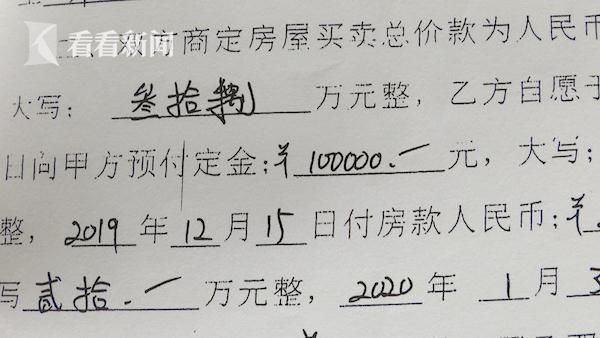 看看新闻
二、双方商定房屋买卖总价款为人民币
大写： 叁拾 万元整，乙方自愿于
日向甲方预付定金;¥ 100000.- 元，大写;
整， 2019 年 12 月 15 日付房款人民币;¥
写 贰拾.- 万元整， 2020 年 1 月